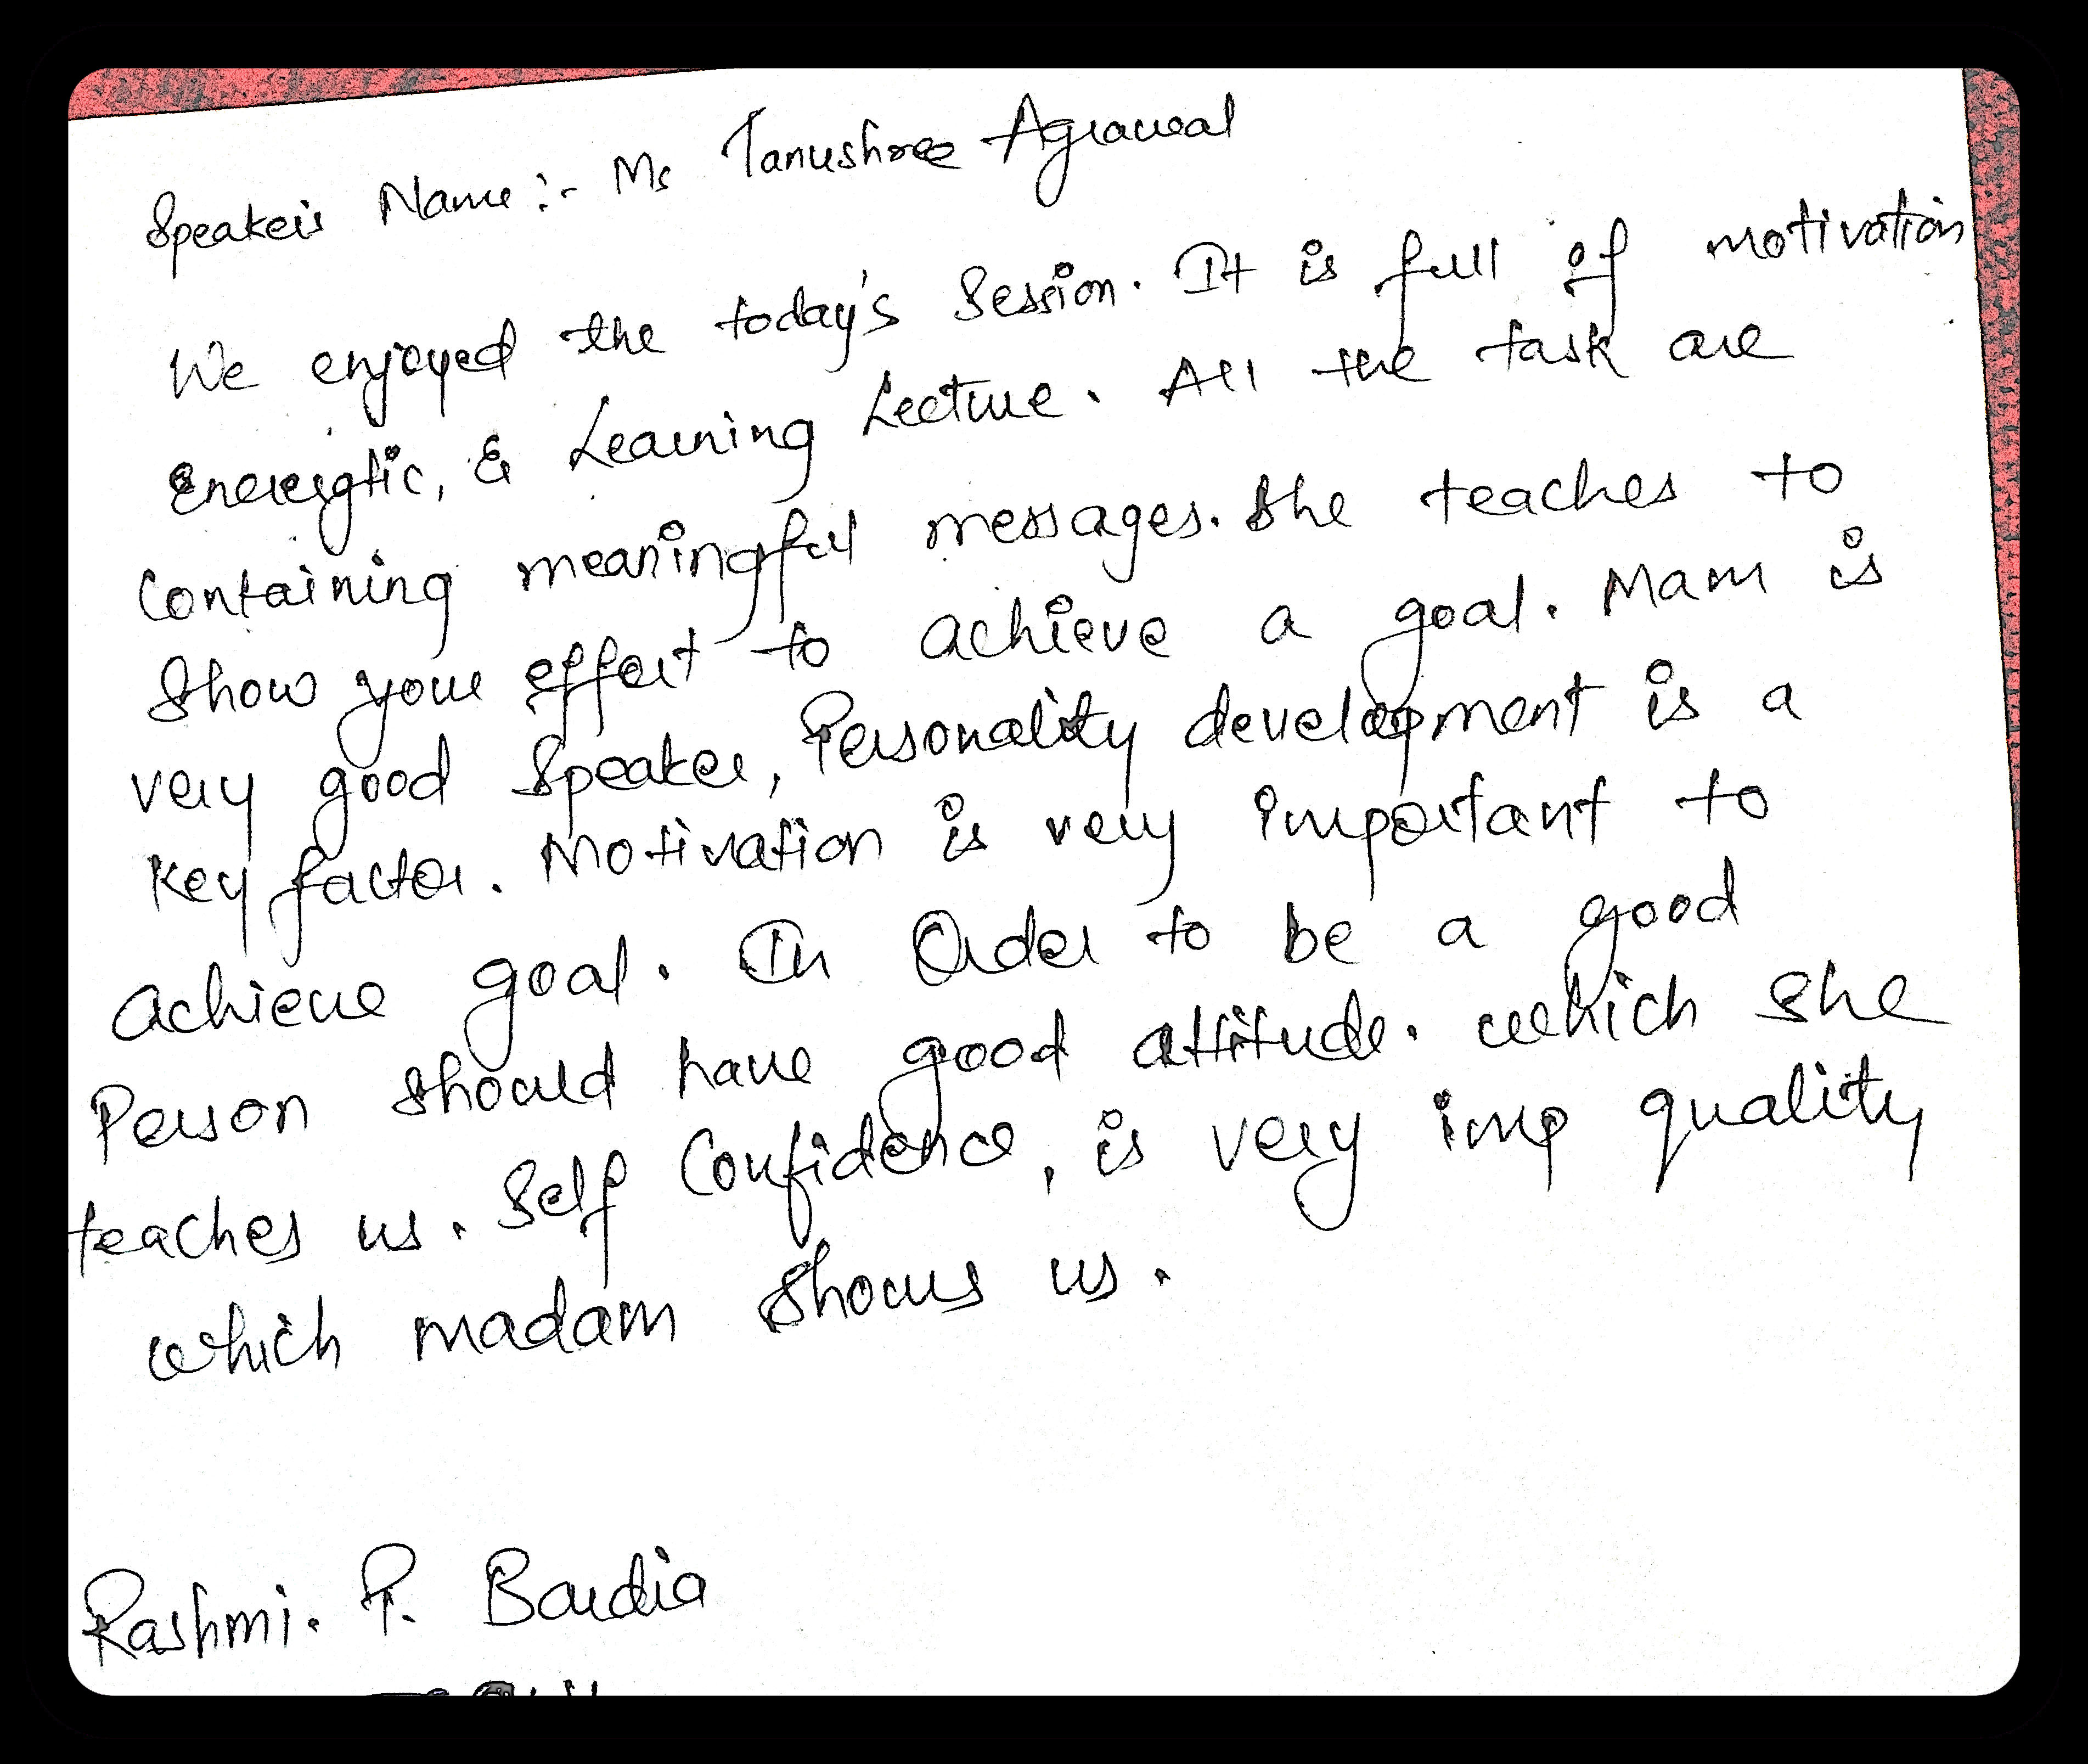 Speaker's Name :- Ms Tanushree Agrawal
We enjoyed the today's Session. It is full of motivation
Energtic, & Learning Lecture. All the task are
Containing meaningful messages. She teaches to
Show your effort to achieve a goal. Mam is
very good Speaker, Personality development is a
Key factor. Motivation is very important to
achieve goal. In Order to be a good
Person should have good attitude. which she
teaches us. Self Confidence, is very imp quality
which madam shows us.
Rashmi. P. Bardia